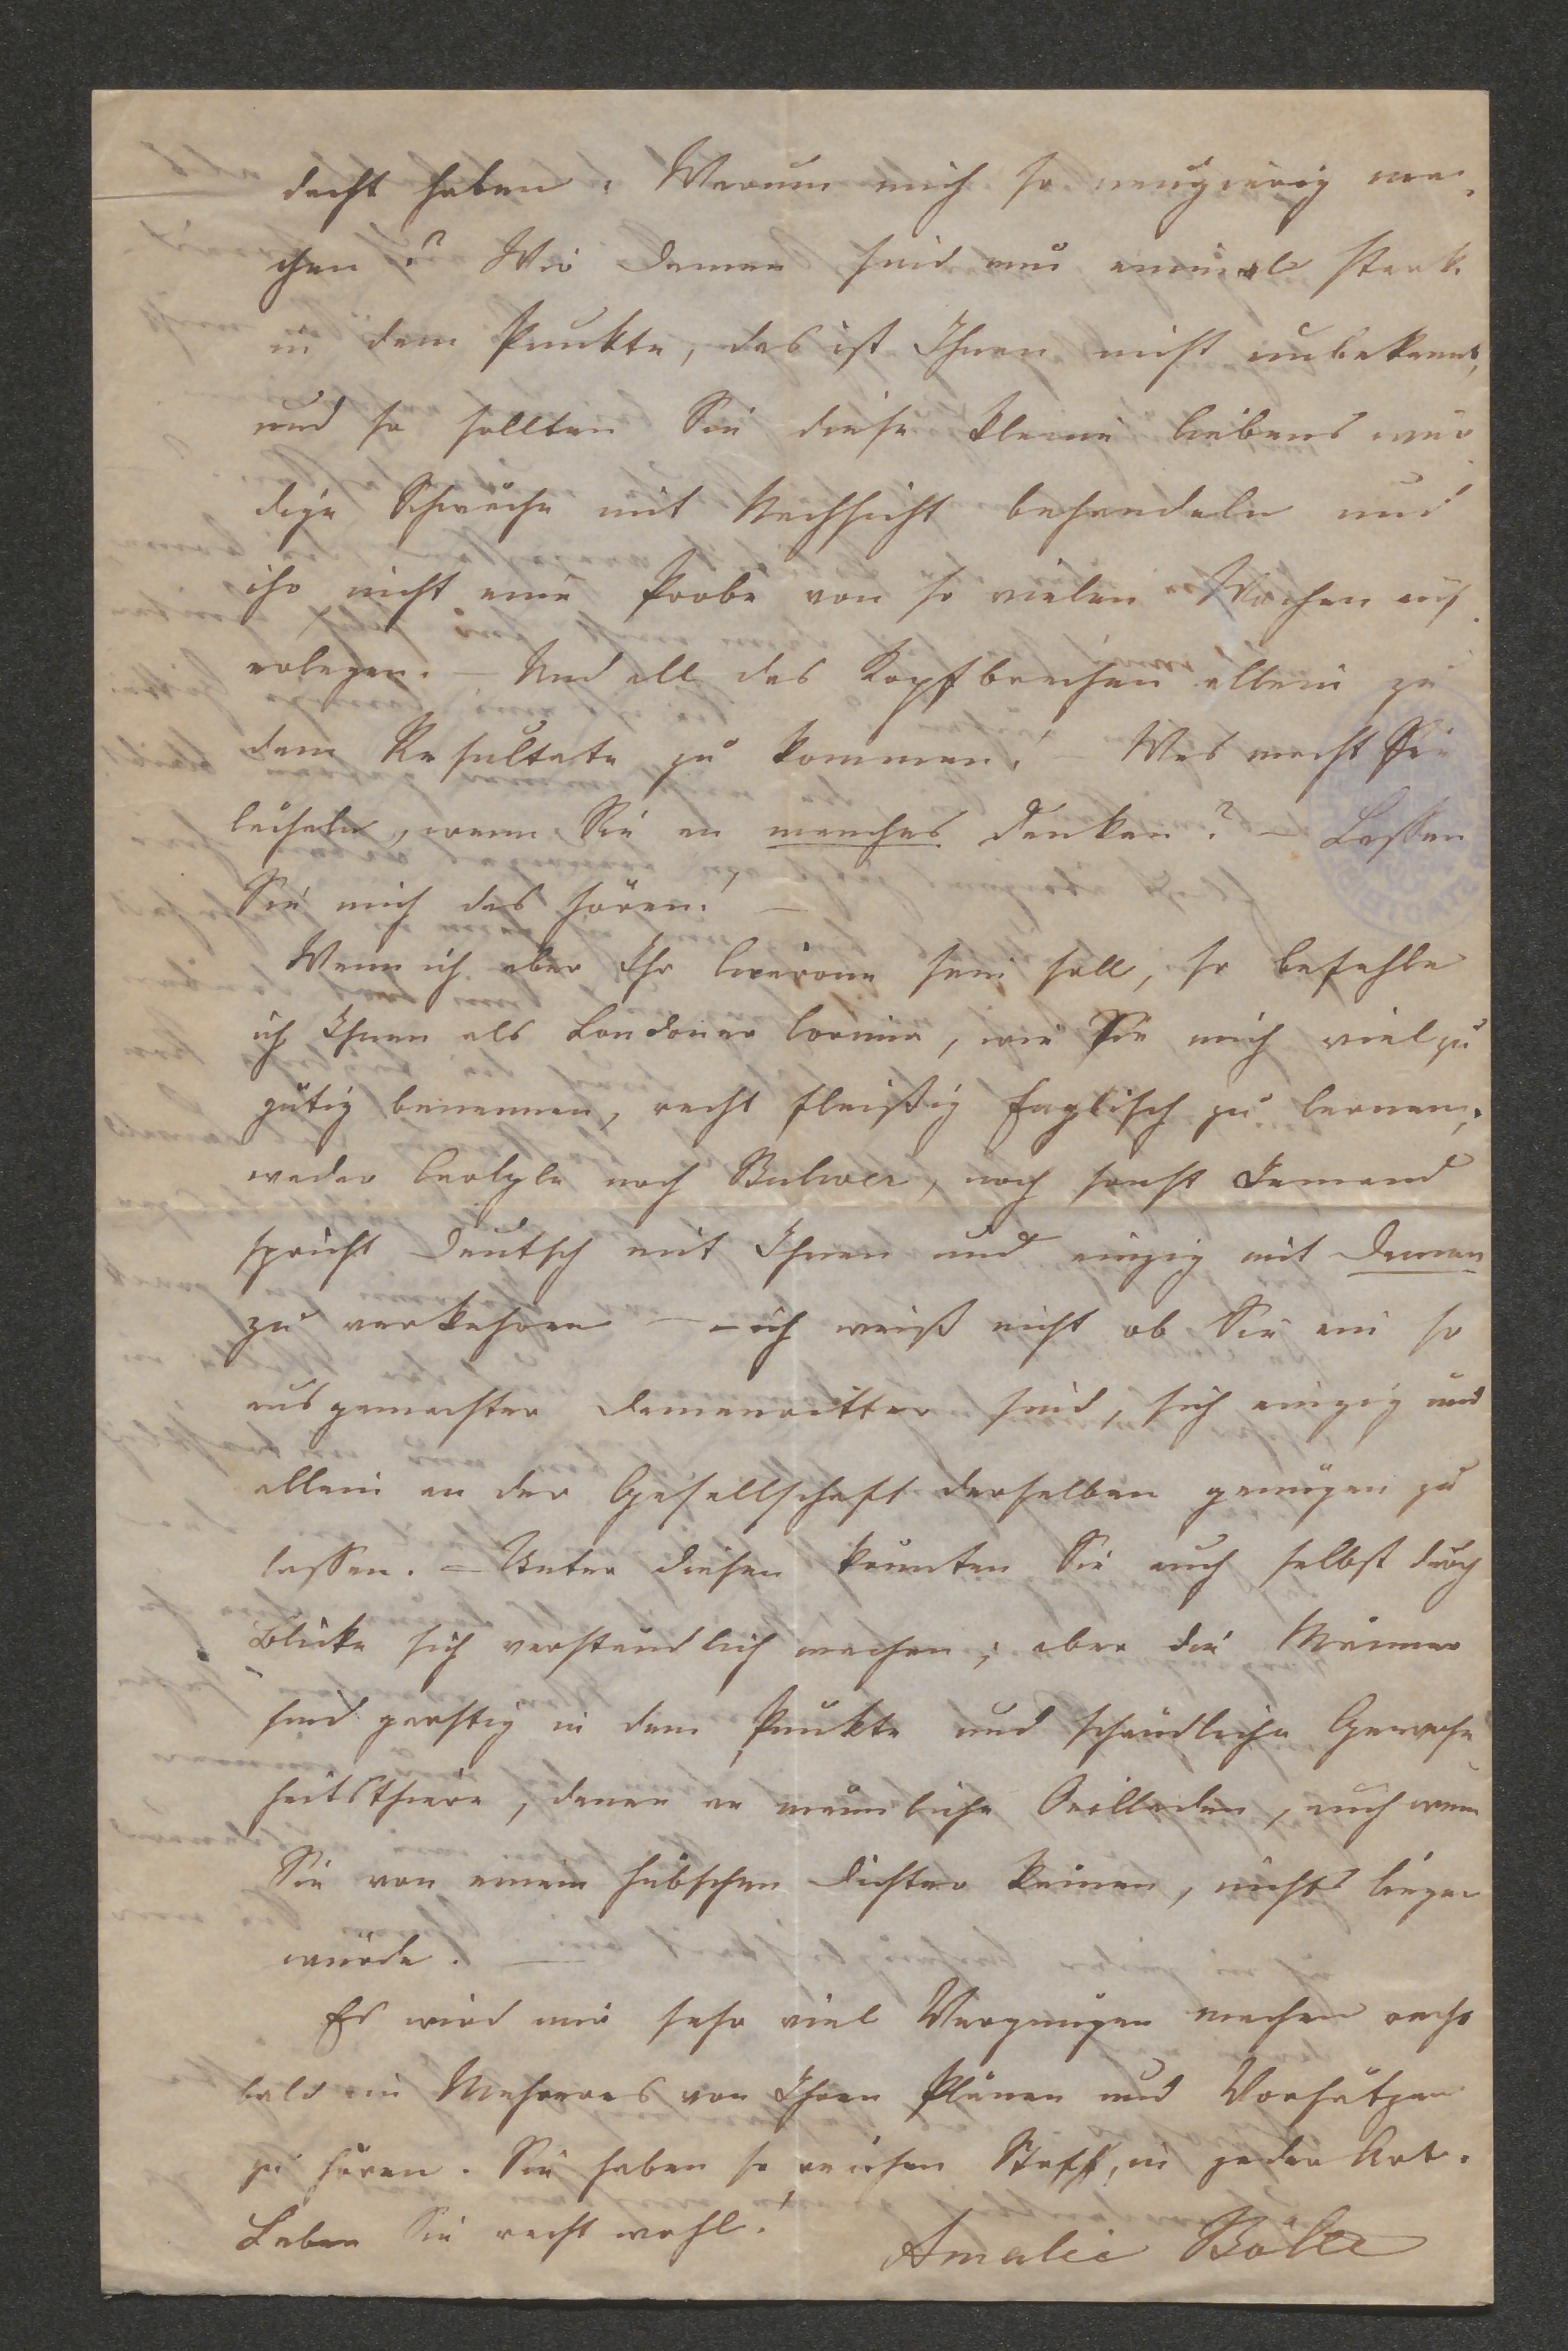 dacht haben. Warum mich so neugierig ma-
chen? Wir Damen sind nun einmal stark
in dem Punkte, das ist Ihnen nicht unbekannt,
und so sollten Sie diese kleine liebenswür
dige Schwäche mit Nachsicht behandeln und
ihr nicht eine Probe von so vielen Wochen auf
erlegen. – Und all das Kopfbrechen allein zu
dem Resultate zu kommen! – Was macht Sie
lächeln, wenn Sie an manches denken? – Lassen
Sie mich das hören! –
Wenn ich aber Ihr Cicerone sein soll, so befehle
ich Ihnen als Londoner Corinna, wie Sie mich viel zu
gütig benennen, recht fleißig Englisch zu lernen;
weder Carlyle noch Bulwer, noch sonst Jemand
spricht Deutsch mit Ihnen und einzig mit Damen
zu verkehren – – ich weiß nicht ob Sie ein so
ausgemachter Damenritter sind, sich einzig und
allein an der Gesellschaft derselben genügen zu
lassen. – Unter diesen könnten Sie auch selbst durch
Blicke sich verständlich machen; aber die Männer
sind garstig in dem Punkte und schändliche Gewohn
heitsthiere, denen an männliche Oeilladen, auch wenn
Sie von einem hübschen Dichter kämen, nichts liegen
würde. –
Es wird mir sehr viel Vergnügen machen recht
bald ein Mehreres von Ihren Plänen und Vorsätzen
zu hören. Sie haben so reichen Stoff, in jeder Art.
Leben Sie recht wohl!
Amalie Bölte